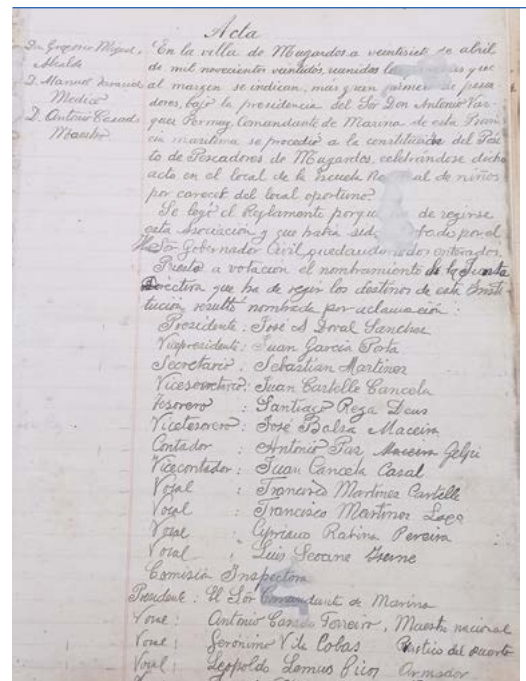 Acta
Dn Gregorio Miguel,
Alcalde
D. Manuel
Medico
D. Antonio Casado
Maestro
En la villa de Mugardos a veintisiete de abril
de mil novecientos veintidós, reunidos los que
al margen se indican, más gran número de pesca
dores, bajo la presidencia del Sor Don Antonio Váz-
quez Permuy, Comandante de Marina de esta Provin
cia marítima se procedió a la constitución del Pósi
to de Pescadores de Mugardos, celebrándose dicho
acto en el local de la Escuela Nacional de niños
por carecer del local oportuno.
Se leyó el Reglamento porque ha de regirse
esta Asociación y que había sido por el
Sor Gobernador Civil, quedando todos enterados.
Puesto a votación el nombramiento de la Junta
Directiva que ha de regir los destinos de esta Insti
tución, resultó nombrada por aclamación:
Presidente: José A Doval Sanchez
Vicepresidente: Juan García Porta
Secretario: Sebastián Martinez
Vicesecretario: Juan Cartelle Cancela
Tesorero : Santiago Rega Deus
Vicetesorero: José Balsa Maceira
Contador : Antonio Paz Maceira Gelpi
Vicecontador: Juan Cancela Casal
Vocal : Francisco Martinez Cartelle
Vocal : Francisco Martinez
Vocal : Cipriano Rabina Pereira
Vocal : Luis Seoane
Comisión Inspectora
Presidente: El Sor Comandante de Marina
Vocal : Antonio Casado Ferreiro, Maestro nacional
Vocal : Gerónimo Vila Cobas Práctico del puerto
Vocal : Leopoldo Lemus Armador